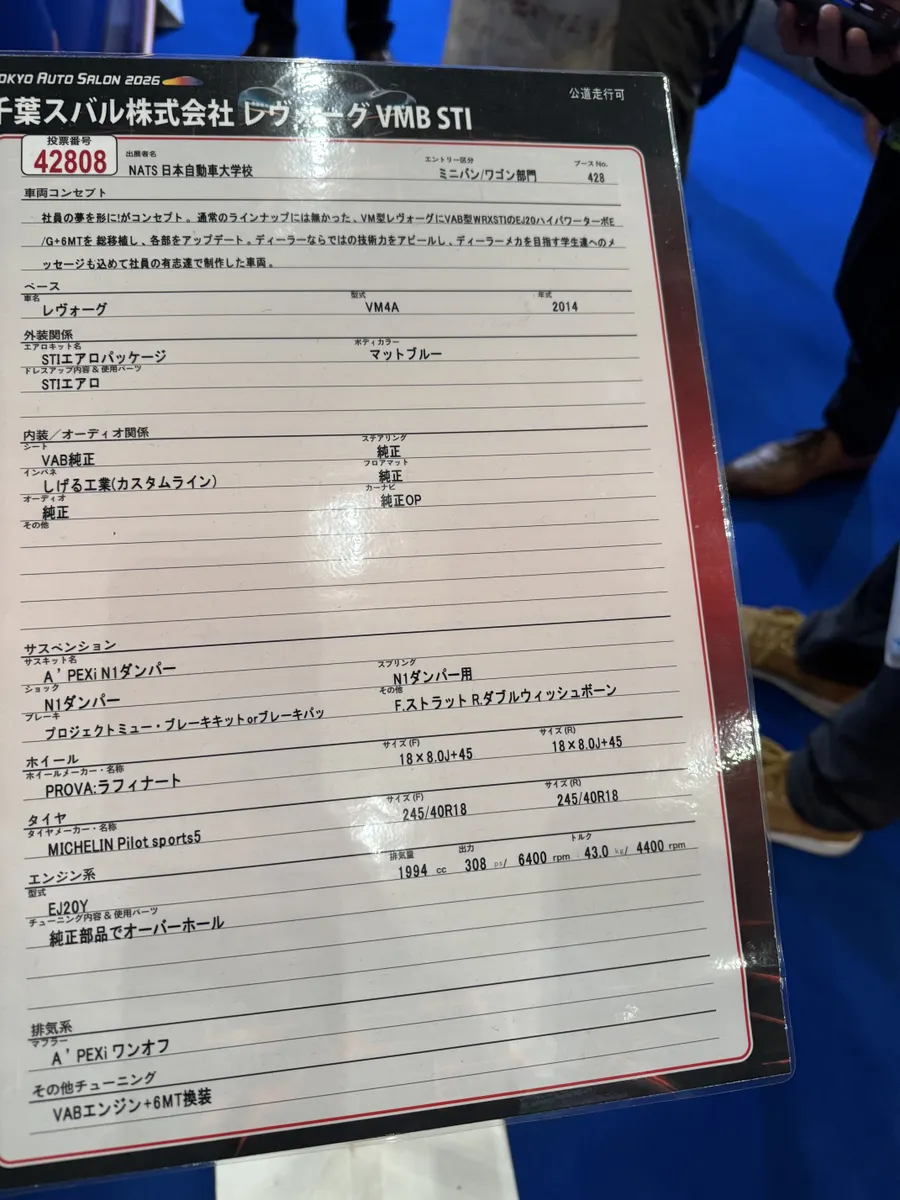 TOKYO AUTO SALON 2026
公道走行可
千葉スバル株式会社 レヴォーグ VMB STI
投票番号
42808
出展者名
NATS 日本自動車大学校
エントリー区分
ミニバン/ワゴン部門
ブース No.
428
車両コンセプト
社員の夢を形に!がコンセプト。通常のラインナップには無かった、VM型レヴォーグにVAB型WRXSTIのEJ20ハイパワーターボE
/G+6MTを 総移植し、各部をアップデート。ディーラーならではの技術力をアピールし、ディーラーメカを目指す学生達へのメ
ッセージも込めて社員の有志達で制作した車両。
ベース
車名
レヴォーグ
型式
VM4A
年式
2014
外装関係
エアロキット名
STIエアロパッケージ
ボディカラー
マットブルー
ドレスアップ内容 & 使用パーツ
STIエアロ
内装/オーディオ関係
シート
VAB純正
ステアリング
純正
インパネ
しげる工業(カスタムライン)
フロアマット
純正
オーディオ
純正
カーナビ
純正OP
その他
サスペンション
サスキット名
A'PEXi N1ダンパー
スプリング
N1ダンパー用
ショック
N1ダンパー
その他
F.ストラット R.ダブルウィッシュボーン
ブレーキ
プロジェクトミュー・ブレーキキットorブレーキパッ
ホイール
ホイールメーカー・名称
PROVA:ラフィナート
サイズ (F)
18×8.0J+45
サイズ (R)
18×8.0J+45
タイヤ
タイヤメーカー・名称
MICHELIN Pilot sports5
サイズ (F)
245/40R18
サイズ (R)
245/40R18
エンジン系
型式
EJ20Y
排気量
1994 cc
出力
308 ps/ 6400 rpm
トルク
43.0 kg/ 4400 rpm
チューニング内容 & 使用パーツ
純正部品でオーバーホール
排気系
マフラー
A'PEXi ワンオフ
その他チューニング
VABエンジン+6MT換装